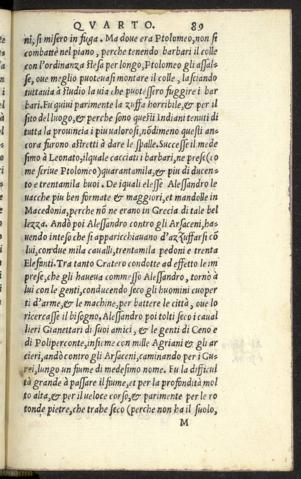 QVARTO. 89
ni, si misero in fuga. Ma doue era Ptolomeo, non si
combatté nel piano, perche tenendo barbari il colle
con l'ordinanza stesa per longo, Ptolomeo gli assal-
se, oue meglio puoteuasi montare il colle, lasciando
tuttauia à studio la uia che puotessero fuggire i bar
bari. Fu quiui parimente la zuffa horribile, & per il
sito del luogo, & perche sono questi Indiani tenuti di
tutta la prouincia i piu ualorosi, nōdimeno questi an-
cora furono astretti à dare le spalle. Successe il mede
simo à Leonato, ilquale cacciati i barbari, ne prese (co
me scriue Ptolomeo) quarantamila, & piu di ducen-
to e trentamila buoi. De iquali elesse Alessandro le
uacche piu ben formate & maggiori, et mandolle in
Macedonia, perche nō ne erano in Grecia di tale bel
lezza. Andò poi Alessandro contro gli Arsaceni, ha-
uendo inteso che si apparicchiauano d'azzuffarsi cō
lui, con due mila caualli, trentamila pedoni e trenta
elefanti. Tra tanto Critero condotte ad effetto le im
prese, che gli haueua commesso Alessandro, tornò à
lui con le genti, conducendo seco gli huomini cuoper
ti d'arme, & le machine, per battere le città, oue lo
ricercasse il bisogno. Alessandro poi tolti seco i caual
lieri Gianettari di suoi amici, & le genti di Ceno e
di Poliperconte, insieme con mille Agriani & gli ar
cieri, andò contro gli Arsaceni, caminando per i Gu-
rei, lungo un fiume di medesimo nome. Fu la difficul
tà grande à passare il fiume, et per la profondità mol
to alta, & per il ueloce corso, & parimente per le ro
tonde pietre, che trahe seco (perche non ha il suolo,
M